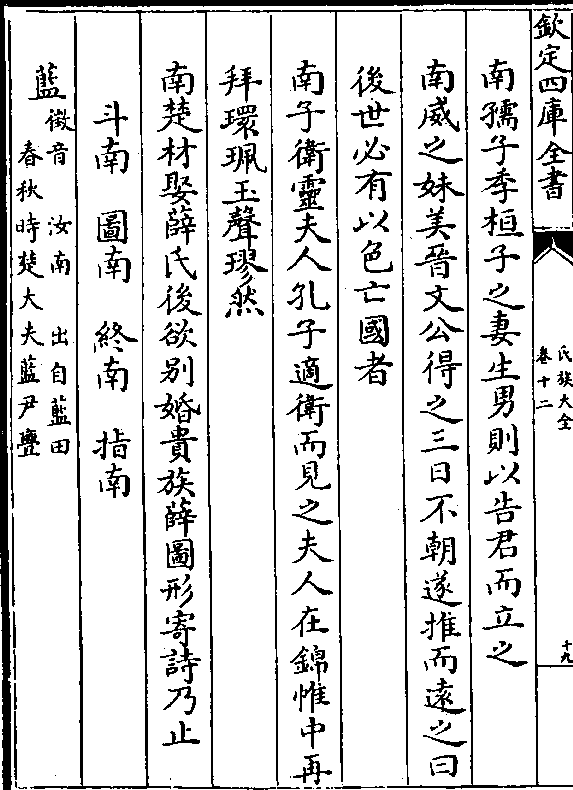 欽定四庫全書
氏族大全
卷十二
十九
南孺子季桓子之妻生男則以告君而立之
南威之妹美晉文公得之三日不朝遂推而遠之曰
後世必有以色亡國者
南子衛靈夫人孔子適衛而見之夫人在錦帷中再
拜環珮玉聲璆然
南楚材娶薛氏後欲别婚貴族薛圖形寄詩乃止
斗南　圖南　終南　指南
藍
徴音　汝南　出自藍田
春秋時楚大夫藍尹亹